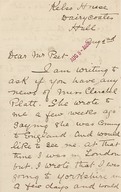 Kelso House
Dairycoates
Hull
Aug 2nd
Dear Mr Peet
I am writing to
ask if you have any
news of Miss Claribel
Platt. She wrote to
me a few weeks ago
saying she was coming
to England and would
like to see me. At that
time I was in London
but I wrote that I am
going to Yorkshire in
a few days and would